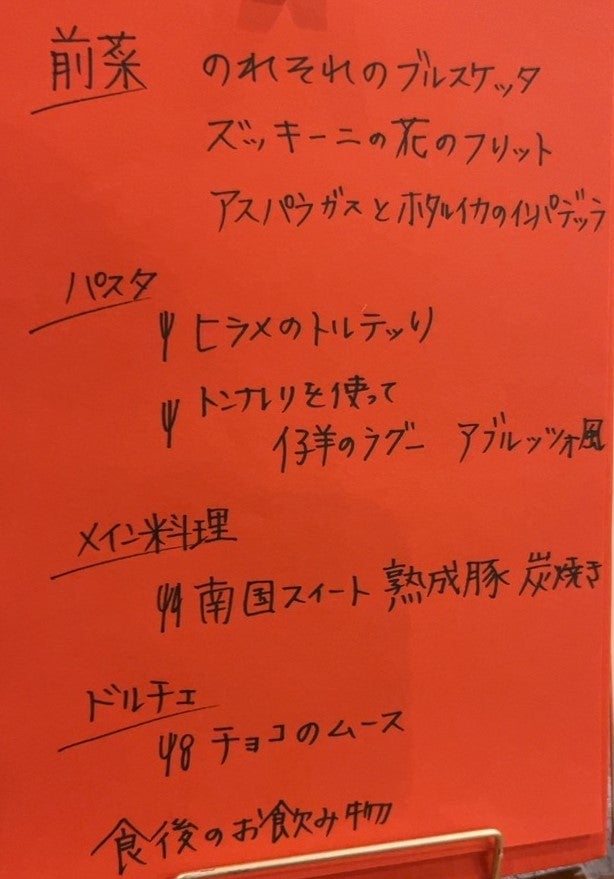 前菜 のれそれのブルスケッタ
ズッキーニの花のフリット
アスパラガスとホタルイカのインパデッラ
パスタ
ヒラメのトルテッリ
トンナレリを使って
仔羊のラグー アブルッツォ風
メイン料理
南国スイート 熟成豚 炭焼き
ドルチェ
チョコのムース
食後のお飲み物